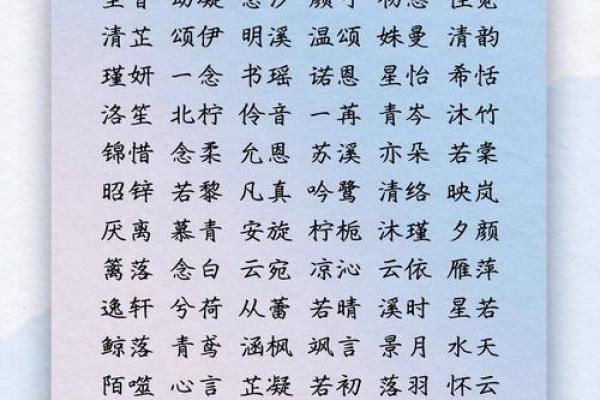 清芷 颂伊 明溪 温颂 姝曼 清韵
瑾妍 一念 书瑶 诺恩 星怡 希恬
洛笙 北柠 伶音 一苒 青岑 沐竹
锦惜 念柔 允恩 苏溪 亦朵 若棠
昭锌 若黎 凡真 吟鹭 清络 映岚
厌离 慕青 安旋 柠栀 沐瑾 夕颜
篱落 念白 云宛 凉沁 云依 雁萍
逸轩 兮荷 从蕾 若晴 溪时 星若
鲸落 青鸢 涵枫 飒言 景月 水天
陌噬 心言 芷凝 若初 落羽 怀云